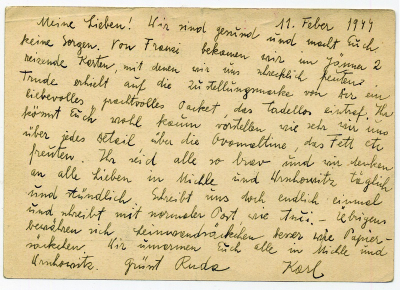 11. Feber 1944
Meine Lieben! Wir sind gesund und macht Euch
keine Sorgen. Von Franzi bekamen wir im Jänner 2
reizende Karten, mit denen wir uns schrecklich freuten.
Trude erhielt auf die Zustellungsmarke von Dir ein
liebevolles, prachtvolles Packet, das tadellos eintraf. Ihr
könnt Euch wohl kaum vorstellen wie sehr wir uns
über jedes Detail, über die Ovomaltine, das Fett etc
freuten. Ihr seid alle so brav und wir denken
an alle Lieben in Michle und Wrschowitz täglich
und stündlich. Schreibt uns doch endlich einmal
und schreibt mit normaler Post, wie - Übrigens
bewähren sich Leinwandsäckchen besser wie Papier-
säckchen. Wir umarmen Euch alle in Michle und
Wrschowitz. Grüsst Ruda Karl